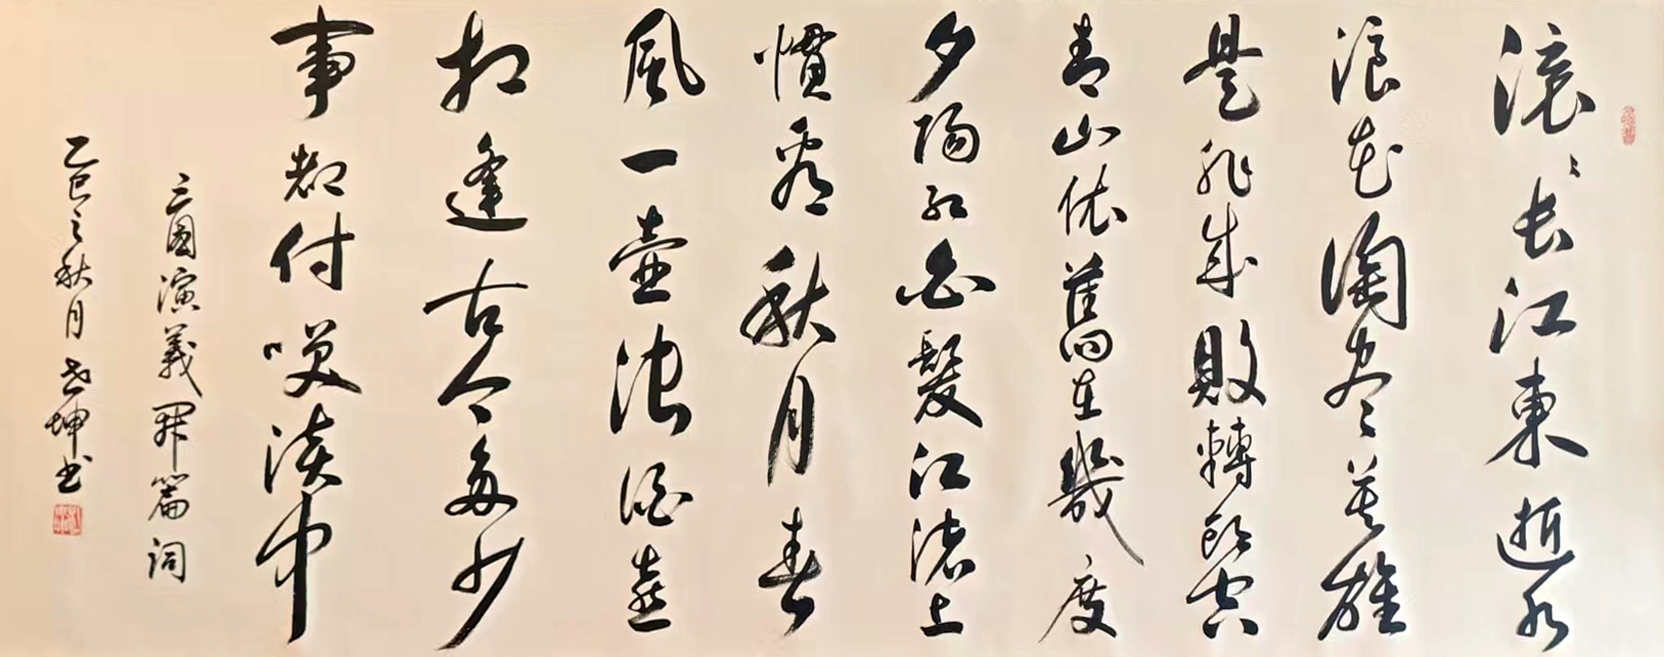 滚滚长江東逝水
浪花淘尽英雄
是非成敗轉頭空
青山依舊在幾度
夕陽红白髮江渚上
慣看秋月春
風一壺浊酒喜
相逢古今多少
事都付咲談中
三國演義開篇詞
乙巳之秋月坤书